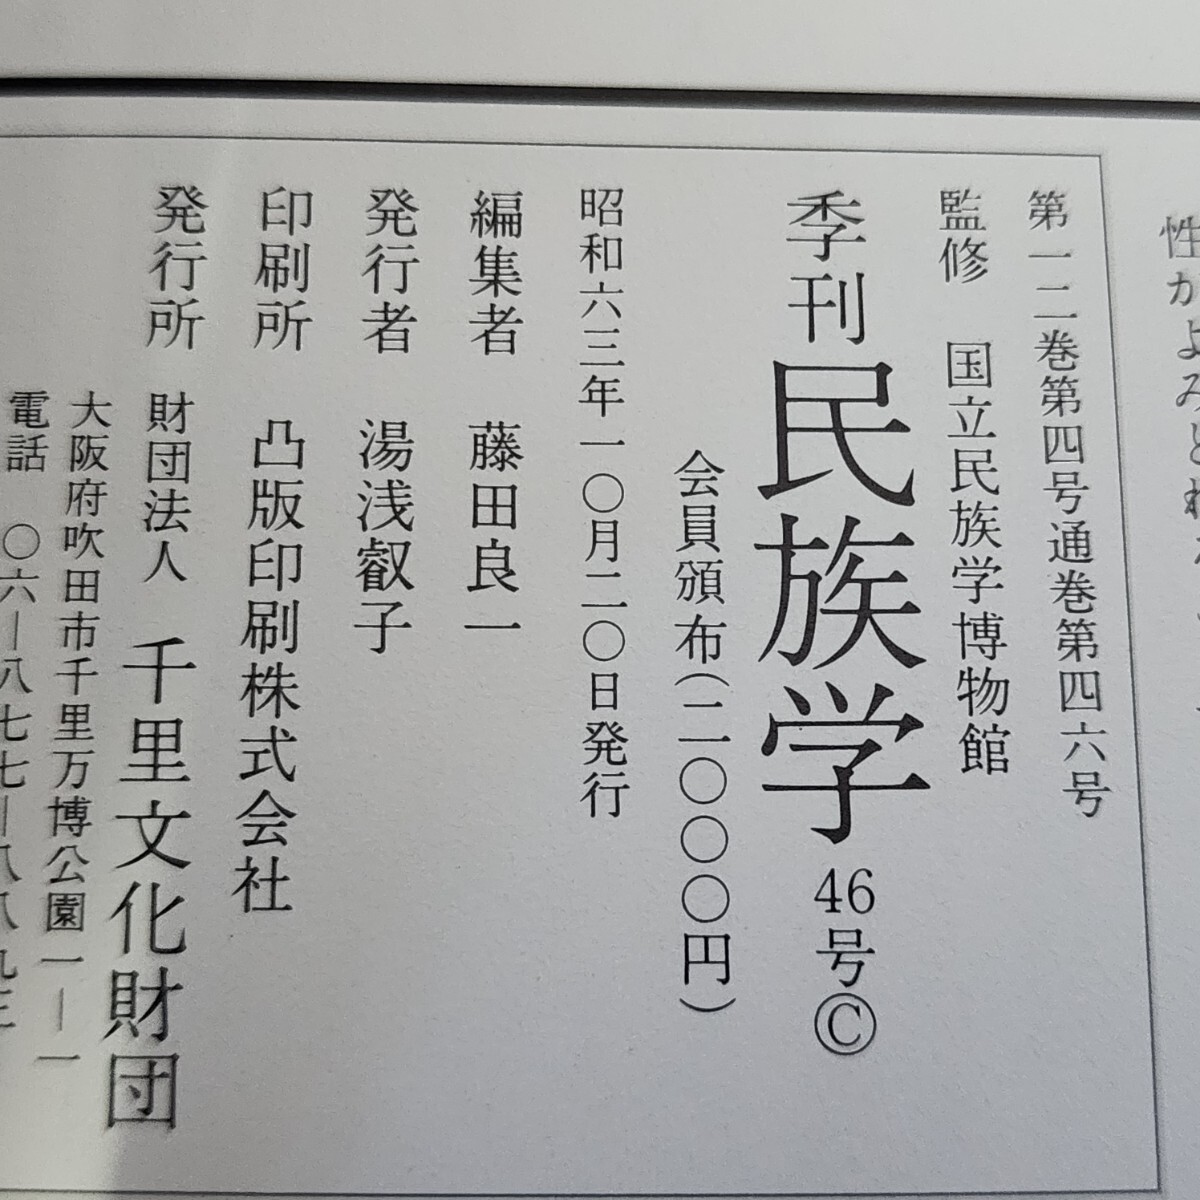 性かよみとれ
第一二巻第四号通巻第四六号
監修 国立民族学博物館
季刊 民族学 46号©
会員頒布(二〇〇〇円)
昭和六三年一〇月二〇日発行
編集者 藤田良一
発行者 湯浅叡子
印刷所 凸版印刷株式会社
発行所 財団法人 千里文化財団
大阪府吹田市千里万博公園一―一
電話 〇六―八七七―八八九三